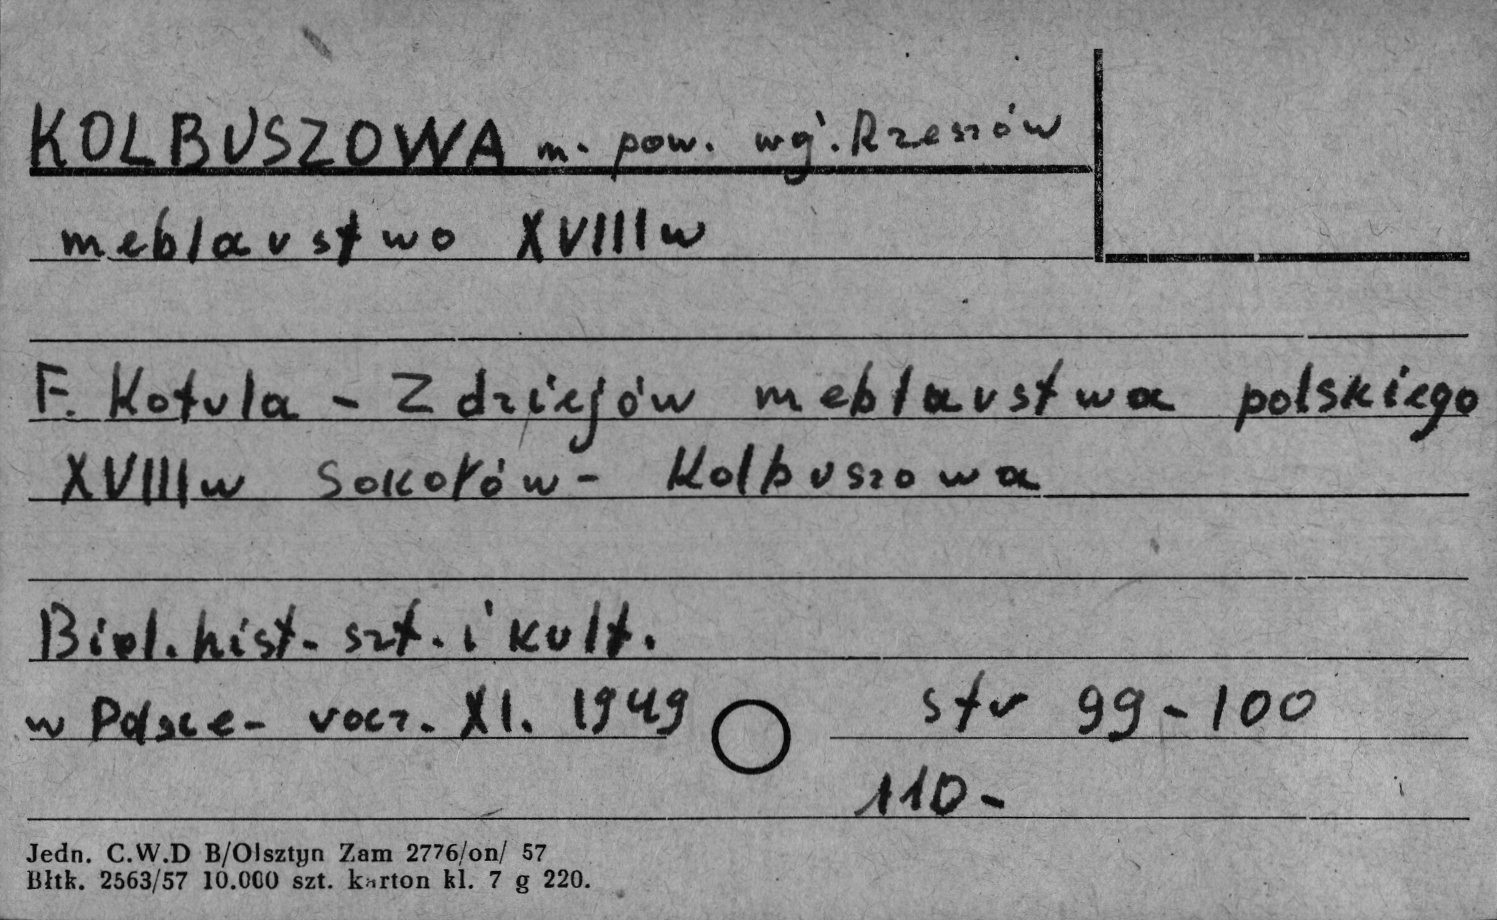 KOLBUSZOWA m. pow. wg. Rzeszów
meblarstwo XVIII w
F. Kotula - Z dziejów meblarstwa polskiego
XVIII w Sokołów - Kolbuszowa
Biul. hist. szt. i kult.
w Polsce - rocz. XI. 1949 str 99-100
110-
Jedn. C.W.D B/Olsztyn Zam 2776/on/ 57
Błtk. 2563/57 10.000 szt. karton kl. 7 g 220.